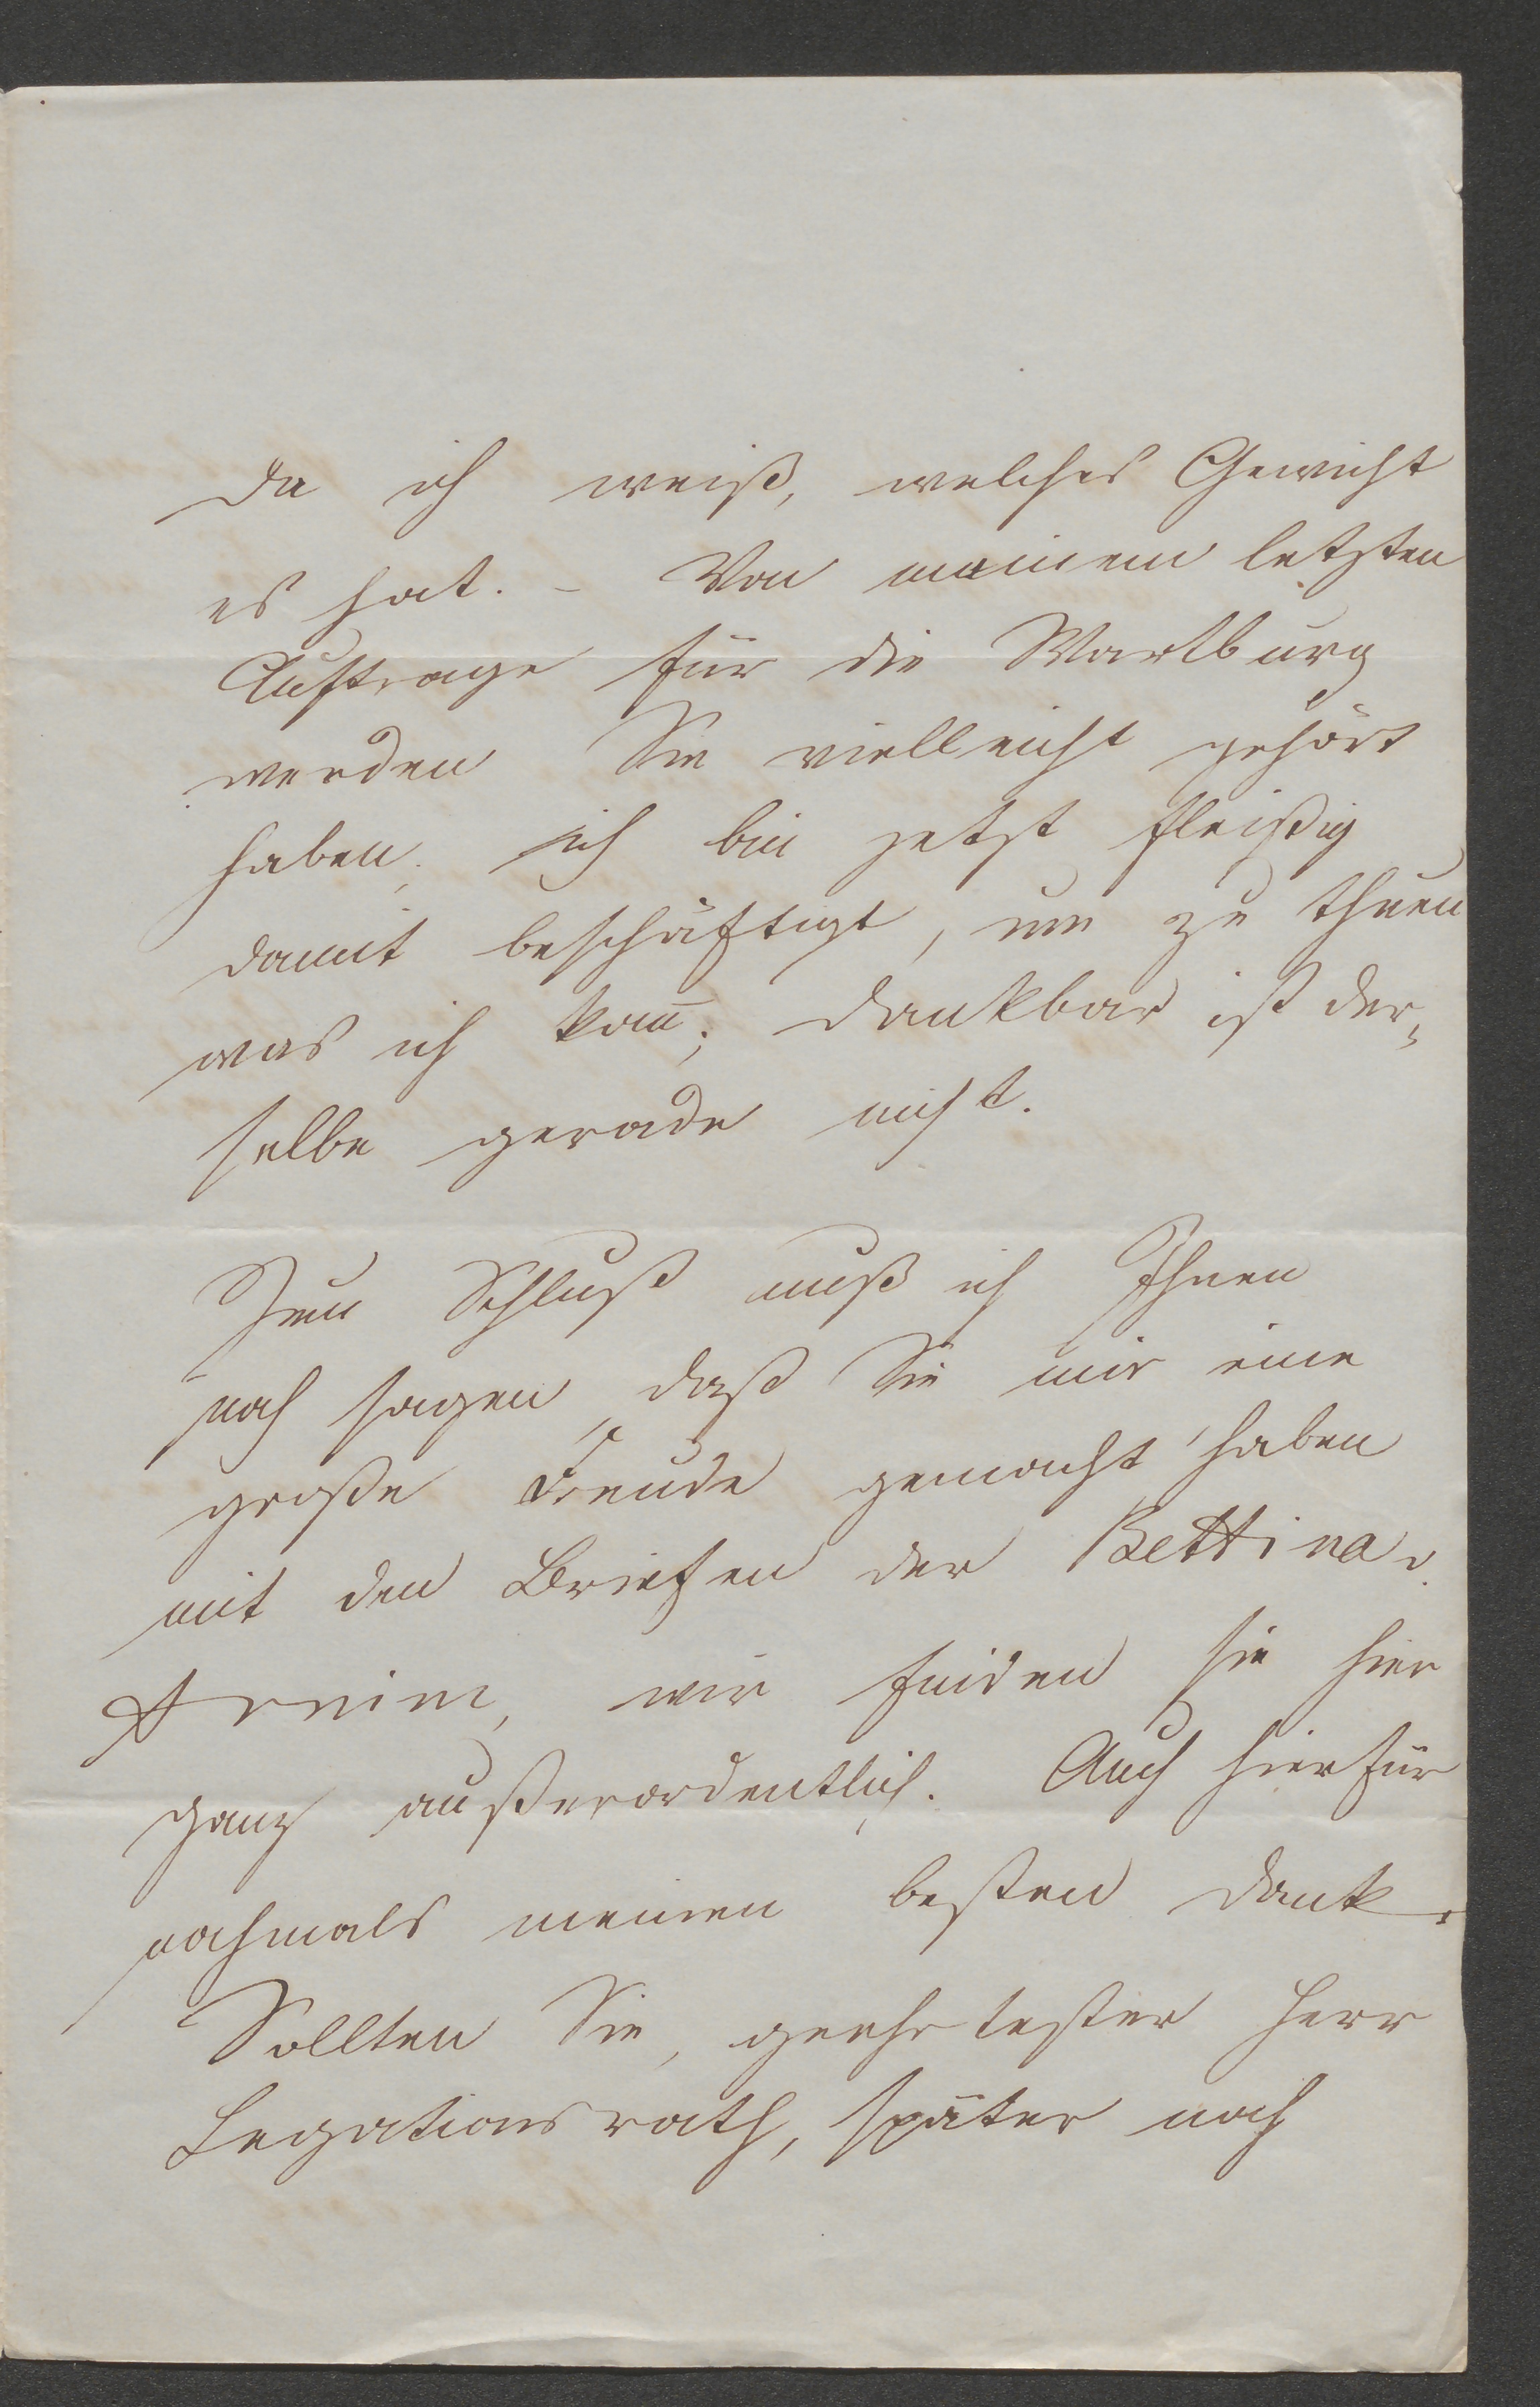 da ich weiß, welches Gewicht
es hat. – Von meinem letzten
Auftrage für die Wartburg
werden Sie vielleicht gehört
haben, ich bin jetzt fleißig
damit beschäftigt, um zu thuen
was ich kan̅; dankbar ist der⸗
selbe gerade nicht.
Zum Schluß muß ich Ihnen
noch sagen, daß Sie mir eine
große Freude gemacht haben
mit den Briefen der Bettina v.
Arnim, wir finden sie hier
ganz außerordentlich. Auch hierfür
nochmals meinen besten Dank.
Sollten Sie, geehrtester Herr
Legationsrath, später noch